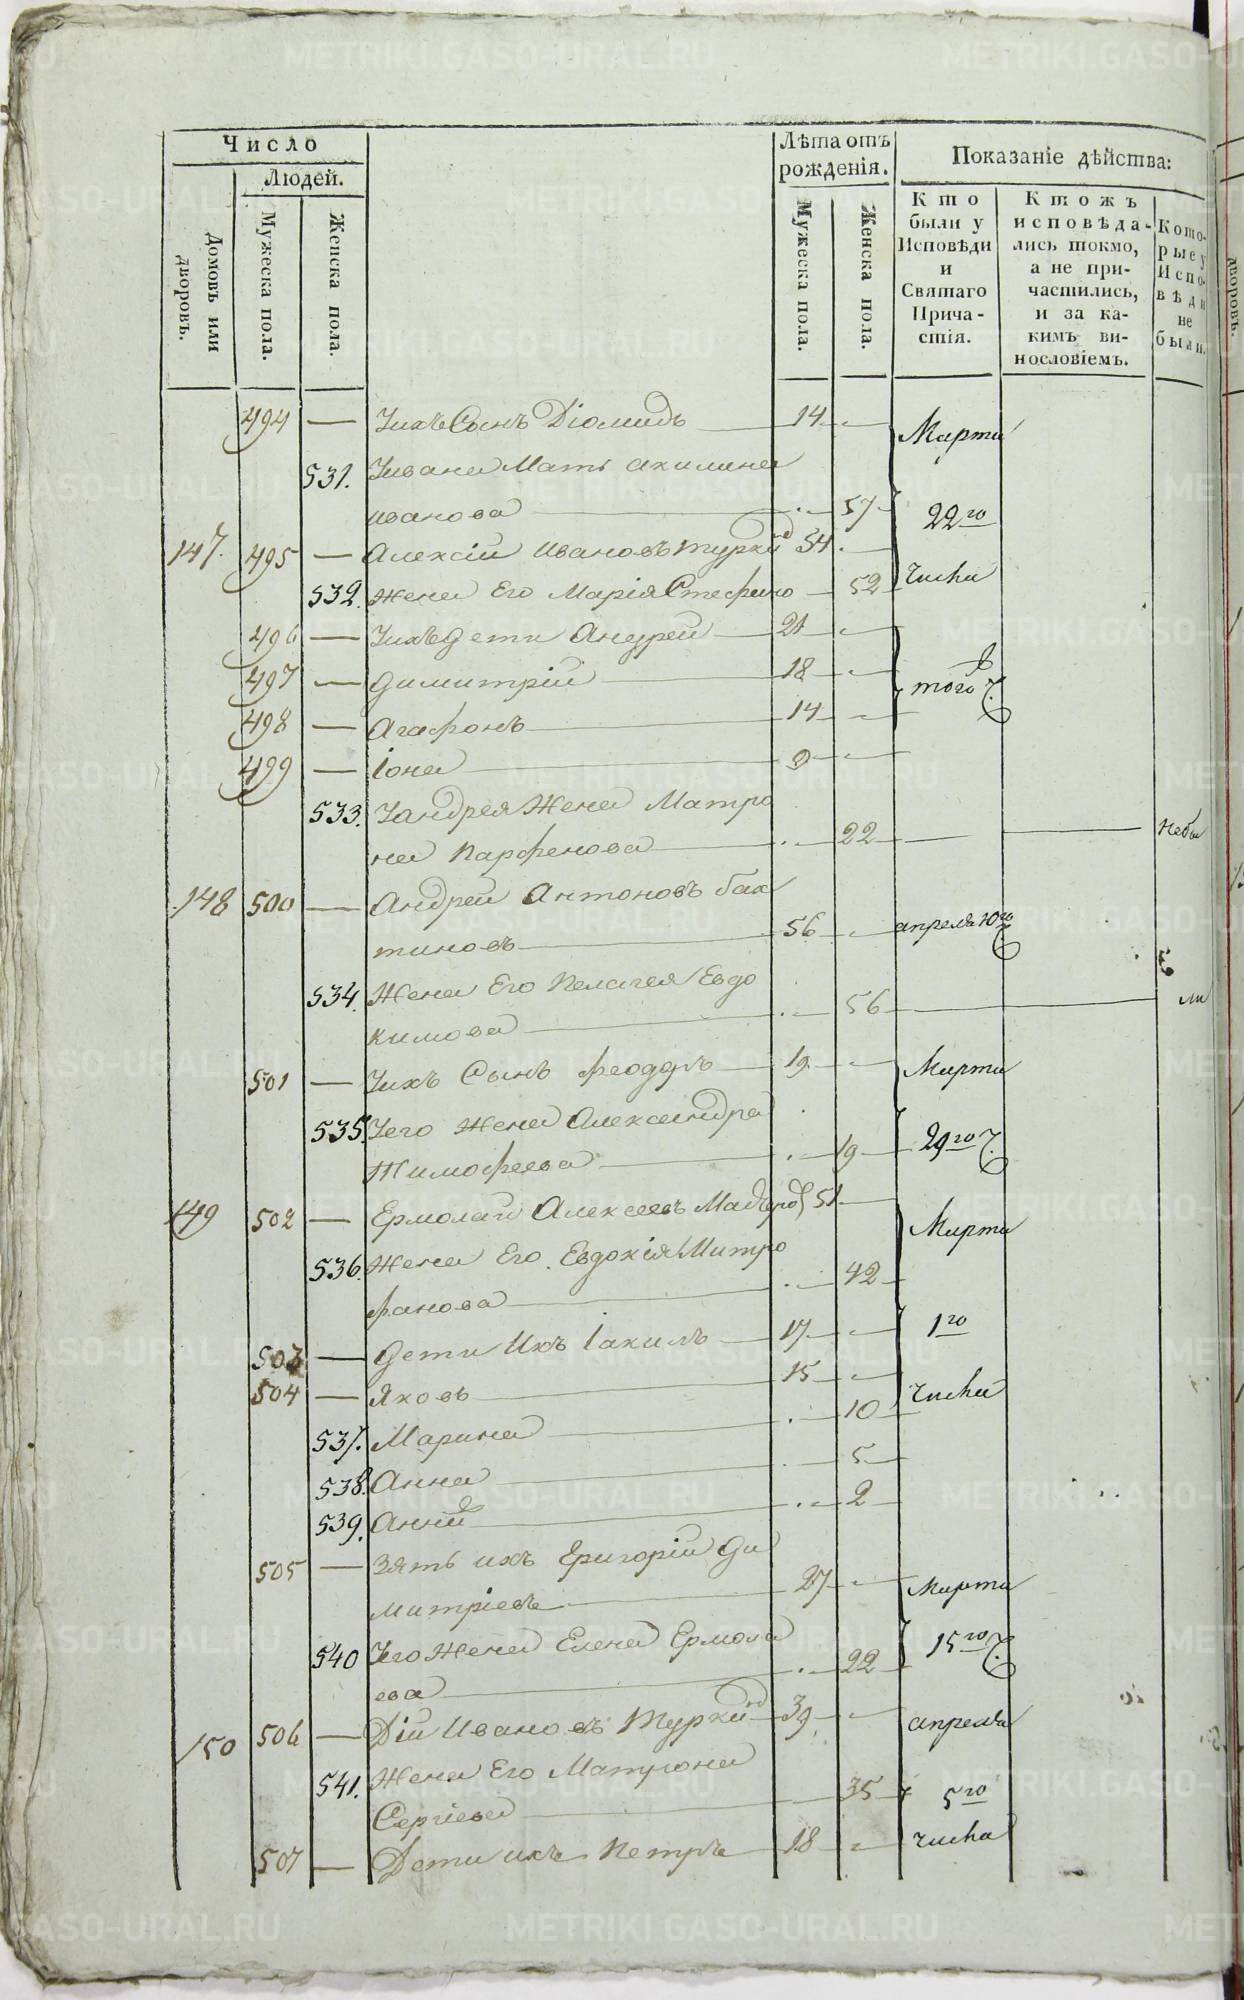 Число
Людей.
Домовъ или дворовъ.
Мужеска пола.
Женска пола.
Лѣта отъ рожденія.
Мужеска пола.
Женска пола.
Показаніе дѣйства:
Кто были у Исповѣди и Святаго Причастія.
Ктожъ исповѣдались токмо, а не причастились, и за какимъ винословіемъ.
Которые у Исповѣди не были.
494 — Ихъ Сынъ Діомидъ 14 — Марта
531. Ивана Мать Акилина
иванова 57 22го
147. 495 — Алексій Ивановъ Туркі 54 —
532. Жена Его Марія Стефано 52 числа
496 — Ихъ дети Андрей 21 —
497 — Димитрій 18 — того ч.
498 — Агафонъ 14 —
499 — Іона 9 —
533. Андрея Жена Матро
на Парфенова 22 — небы
148 500 — Андрей Антоновъ бах
тиновъ 56 — апреля 10го
534. Жена Его Пелагея Евдо
кимова 56 — ли
501 — Ихъ Сынъ Феодоръ 19 — Марта
535. Его Жена Александра
Тимофеева 19 29го ч.
149 502 — Ермолай Алексеевъ 51 — Марта
536. Жена Его Евдокія Митро
фанова 42
503 — Дети Ихъ Іакимъ 17 — 1го
504 — Яковъ 15 — числа
537. Марина 10
538. Анна 5
539. 2
505 — Зять ихъ Григорій Ди
митріевъ 27 — Марта
540 Его Жена Елена Ермола
ева 22 15го ч.
150 506 — Дій Ивановъ Туркі 39 — апреля
541. Жена Его Матрона
Сергіева 35 5го
507 — Дети ихъ Петръ 18 — числа
METRIKI.GASO-URAL.RU